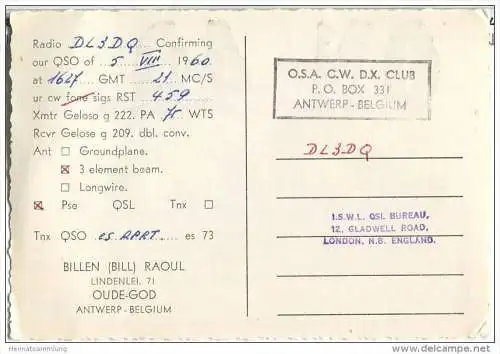 Radio DL3DQ Confirming
our QSO of 5 VIII 1960
at 1627 GMT 21 MC/S
ur cw fone sigs RST 459
Xmtr Geloso g 222. PA 75 WTS
Rcvr Geloso g 209. dbl. conv.
Ant ☐ Groundplane.
☒ 3 element beam.
☐ Longwire.
☒ Pse QSL Tnx ☐
Tnx QSO es RPRT es 73
BILLEN (BILL) RAOUL
LINDENLEI, 71
OUDE-GOD
ANTWERP - BELGIUM
O.S.A. C.W. D.X. CLUB
P.O. BOX 331
ANTWERP - BELGIUM
DL3DQ
I.S.W.L. QSL BUREAU,
12, GLADWELL ROAD,
LONDON, N.8. ENGLAND.
Heimatsammlung
delcampe.net